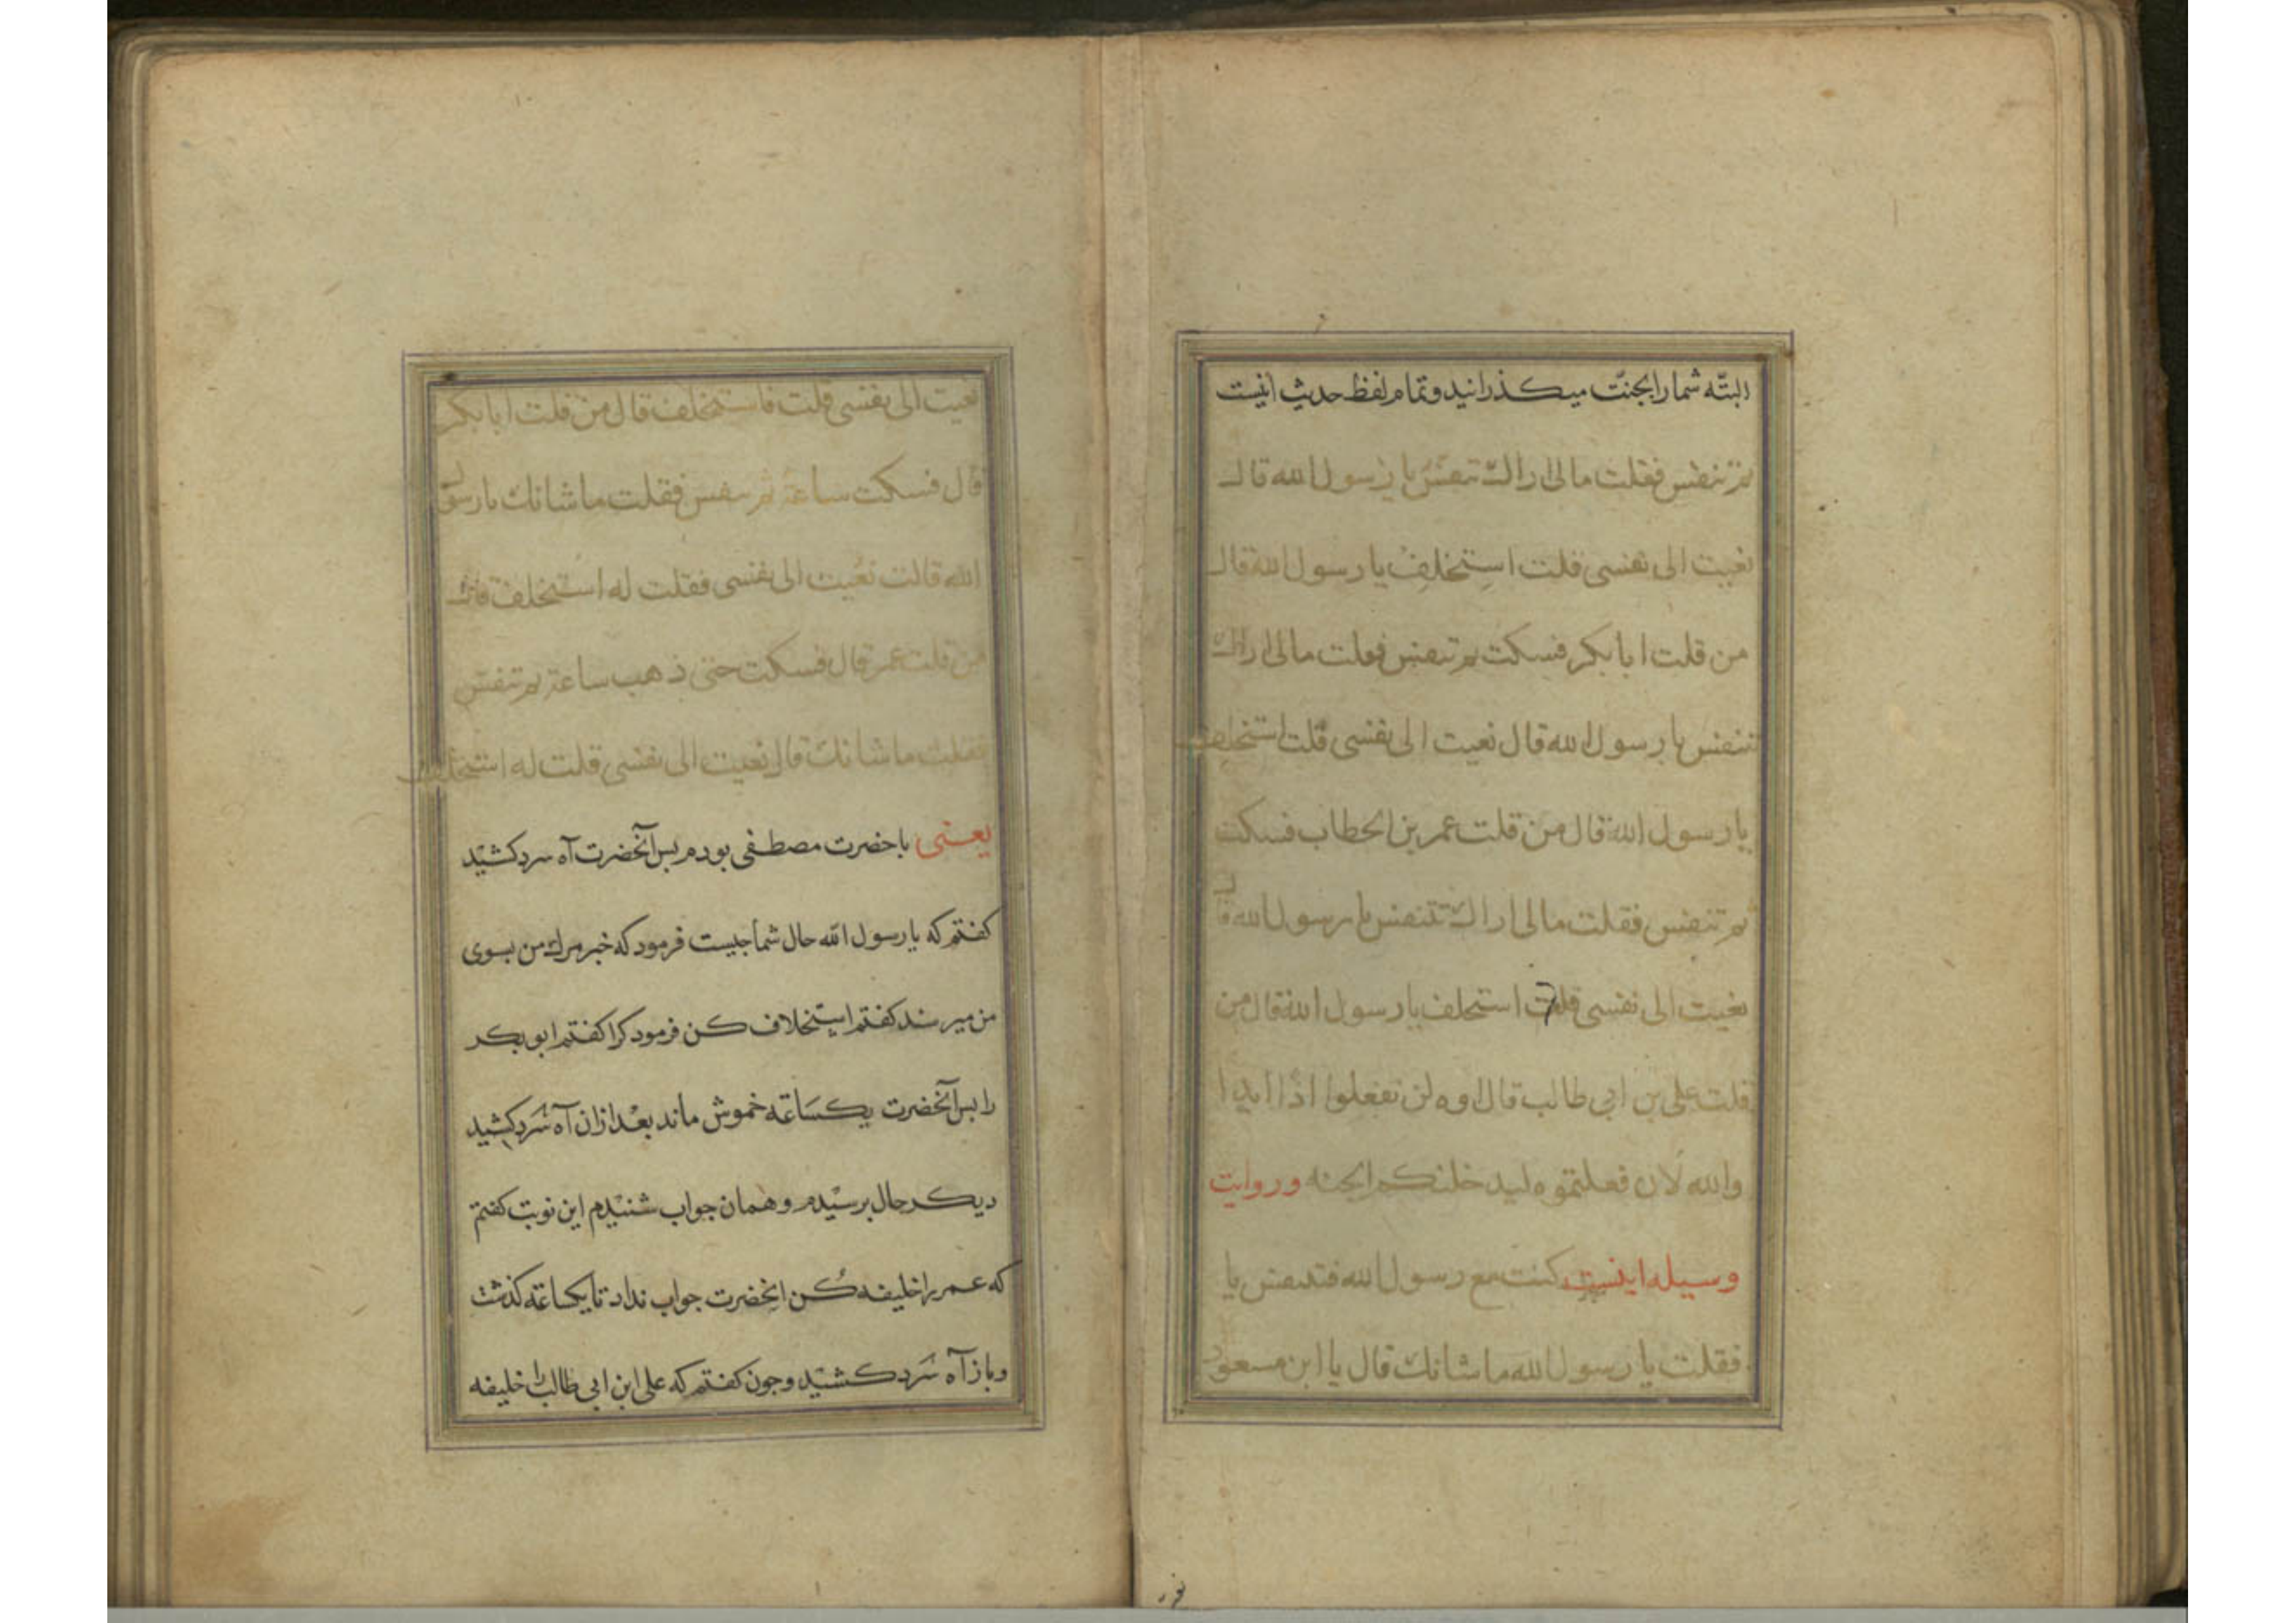 البتّه شما را بجنّت میکذرانید و تمام لفظ حدیث اینست
ثم تنفس فقلت مالی اراك تنفس یا رسول الله قال
نعیت الی نفسی قلت استخلف یا رسول الله قال
من قلت ابا بکر فسکت ثم تنفس فقلت مالی اراك
تنفس یا رسول الله قال نعیت الی نفسی قلت استخلف
یا رسول الله قال من قلت عمر بن الخطاب فسکت
ثم تنفس فقلت مالی اراك تتنفس یا رسول الله قال
نعیت الی نفسی قلت استخلف یا رسول الله قال من
قلت علی بن ابی طالب قال اوه لن تفعلوا اذا ابدا
والله لان فعلتموه لیدخلنکم الجنه و روایت
وسیله اینست کنت مع رسول الله فتنفس یا
فقلت یا رسول الله ما شانك قال یا ابن مسعود
نعیت الی نفسی قلت فاستخلف قال من قلت ابا بکر
قال فسکت ساعة ثم تنفس فقلت ما شانك یا رسول
الله قالت نعیت الی نفسی فقلت له استخلف قال
من قلت عمر قال فسکت حتی ذهب ساعة ثم تنفس
فقلت ما شانك قال نعیت الی نفسی قلت له استخلف
یعنی با حضرت مصطفی بودم بس آنحضرت آه سرد کشید
کفتم که یا رسول الله حال شما جیست فرمود که خبر مرك من بسوی
من میرسند کفتم استخلاف کن فرمود کرا کفتم ابو بکر
را بس آنحضرت یکساعة خموش ماند بعد ازان آه سَرد کشید
دیکر حال برسیدم و همان جواب شنیدم این نوبت کفتم
که عمر را خلیفه کُن انحضرت جواب نداد تا یکساعة کذشت
و باز آه سَرد کشید و جون کفتم که علی ابن ابی طالب را خلیفه